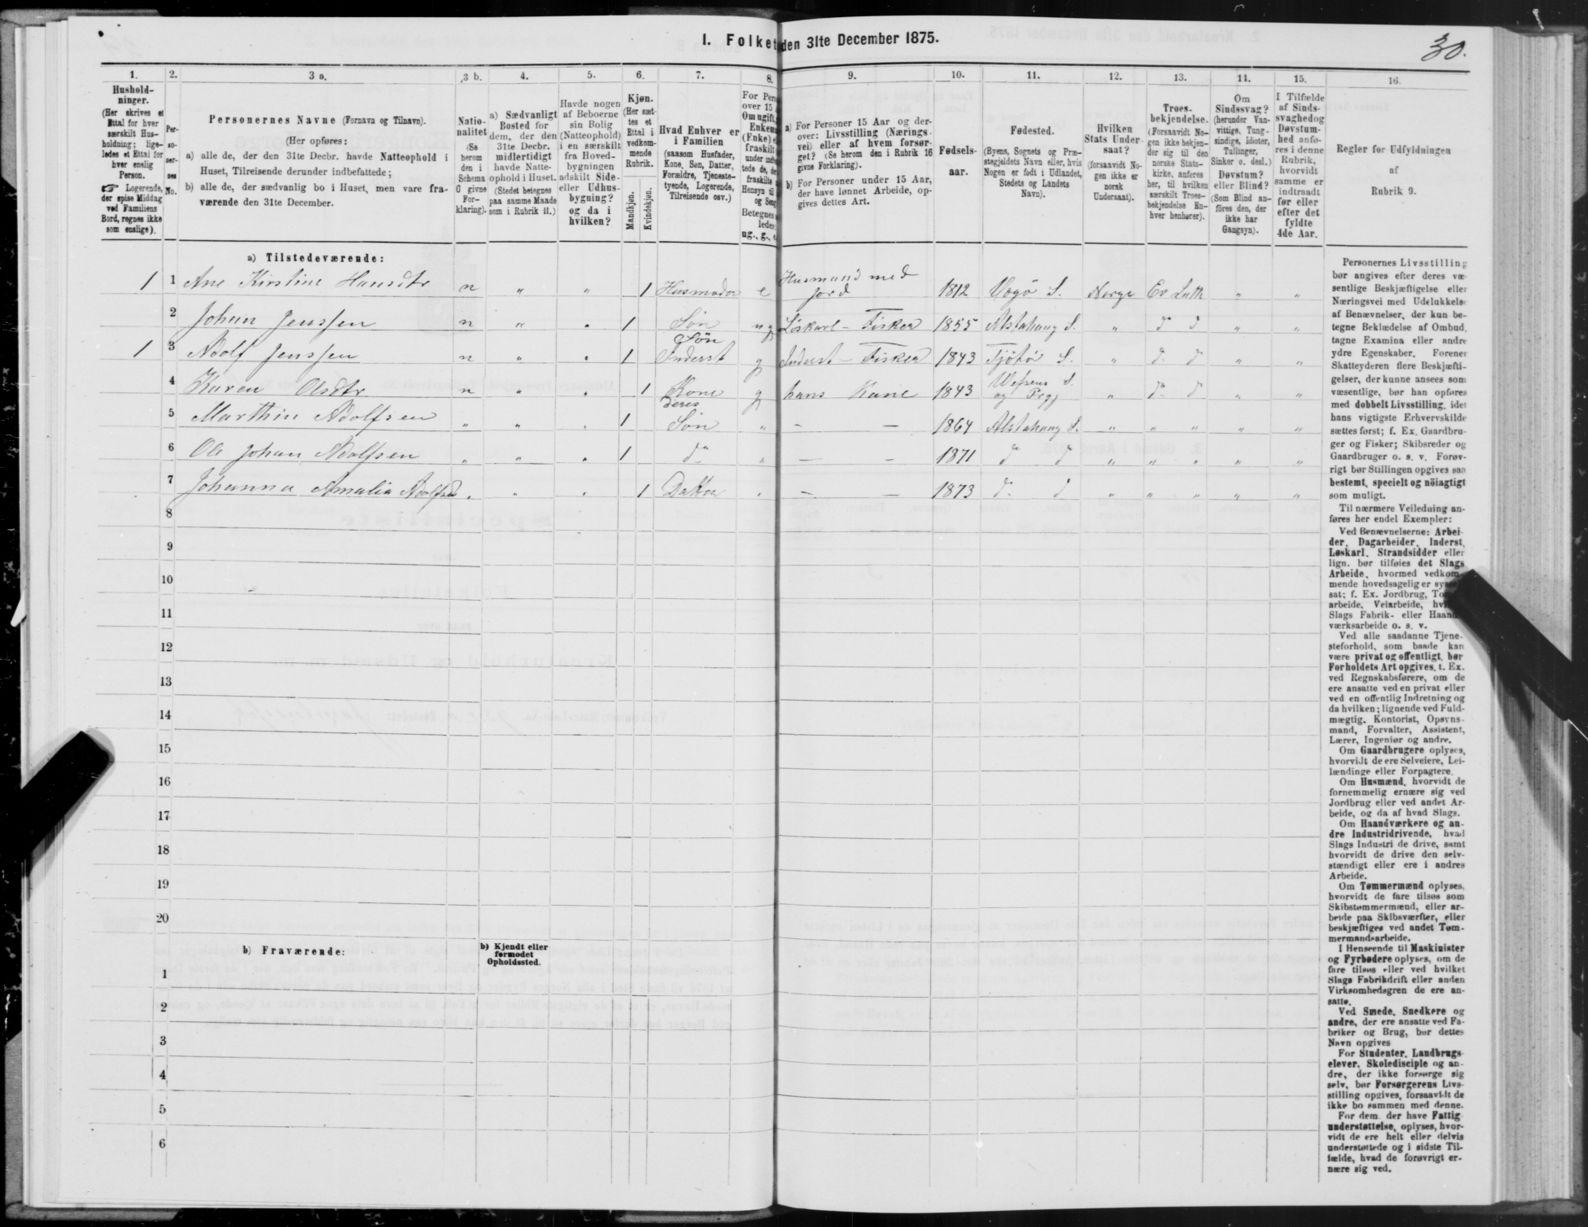 30.
I. Folket den 31te December 1875.
1. 2. 3 a. 3 b. 4. 5. 6. 7. 8. 9. 10. 11. 12. 13. 14. 15. 16.
Hushold-
ninger.
(Her skrives et
Ettal for hver
særskilt Hus-
holdning; lige-
ledes et Ettal for
hver enslig
Person.
☞ Logerende,
der spise Middag
ved Familiens
Bord, regnes ikke
som enslige).
Per-
so-
ner-
nes
No.
Personernes Navne (Fornavn og Tilnavn).
(Her opføres:
a) alle de, der den 31te Decbr. havde Natteophold i
Huset, Tilreisende derunder indbefattede;
b) alle de, der sædvanlig bo i Huset, men vare fra-
værende den 31te December.
Natio-
nalitet
(Se
herom
den i
Schema
G givne
For-
klaring).
a) Sædvanligt
Bosted for
dem, der den
31te Decbr.
midlertidigt
havde Natte-
ophold i Huset.
(Stedet betegnes
paa samme Maade
som i Rubrik 11.)
Havde nogen
af Beboerne
sin Bolig
(Natteophold)
i en særskilt
fra Hoved-
bygningen
adskilt Side-
eller Udhus-
bygning?
og da i
hvilken?
Kjøn.
(Her sæt-
tes et
Ettal i
vedkom-
mende
Rubrik.
Mandkjøn.
Kvindekjøn.
Hvad Enhver er
i Familien
(saasom Husfader,
Kone, Søn, Datter,
Forældre, Tjeneste-
tyende, Logerende,
Tilreisende osv.)
For Pers
over 15
Om ugift,
Enkem
(Enke) e
fraskilt
a) For Personer 15 Aar og der-
over: Livsstilling (Nærings-
vei) eller af hvem forsør-
get? (Se herom den i Rubrik 16
givne Forklaring).
b) For Personer under 15 Aar,
der have lønnet Arbeide, op-
gives dettes Art.
Fødsels-
aar.
Fødested.
(Byens, Sognets og Præ-
stegjeldets Navn eller, hvis
Nogen er født i Udlandet,
Stedets og Landets
Navn).
Hvilken
Stats Under-
saat?
(forsaavidt No-
gen ikke er
norsk
Undersaat).
Troes-
bekjendelse.
(Forsaavidt No-
gen ikke bekjen-
der sig til den
norske Stats-
kirke, anføres
her, til hvilken
særskilt Troes-
bekjendelse En-
hver henhører).
Om
Sindssvag?
(herunder Van-
vittige, Tung-
sindige, Idioter,
Tullinger,
Sinker o. desl.)
Døvstum?
eller Blind?
(Som Blind an-
føres den, der
ikke har
Gangsyn).
I Tilfælde
af Sinds-
svaghed og
Døvstum-
hed anfø-
res i denne
Rubrik,
hvorvidt
samme er
indtraadt
før eller
efter det
fyldte
4de Aar.
Regler for Udfyldningen
af
Rubrik 9.
a) Tilstedeværende:
1 1 Ane Kirstine Hansdtr n „ „ 1 Husmoder e Husmand med Jord 1812 Vegø S. Norge Ev Luth „ „
2 Johan Jenssen n „ „ 1 Søn ug Löskarl - Fisker 1855 Alstahaug S. „ d d „ „
1 3 Adolf Jenssen n „ „ 1 Søn Inderst g Inderst - Fisker 1843 Tjøtø S. „ d d „ „
4 Karen Olsdtr n „ „ 1 Kone g hans Kone 1843 Vefsens S. og Pgj „ d d „ „
5 Marthin Adolfsen „ „ „ 1 deres Søn „ - - 1864 Alstahaug S. „ „ „ „ „
6 Ole Johan Adolfsen „ „ „ 1 do „ - - 1871 d d „ „ „ „ „
7 Johanna Amalia Adolfsd „ „ „ 1 Datter „ - - 1873 d d „ „ „ „ „
8
9
10
11
12
13
14
15
16
17
18
19
20
b) Fraværende:
b) Kjendt eller
formodet
Opholdssted.
1
2
3
4
5
6
Personernes Livsstilling
bør angives efter deres væ-
sentlige Beskjæftigelse eller
Næringsvei med Udelukkelse
af Benævnelser, der kun be-
tegne Beklædelse af Ombud,
tagne Examina eller andre
ydre Egenskaber. Forener
Skatteyderen flere Beskjæfti-
gelser, der kunne ansees som
væsentlige, bør han opføres
med dobbelt Livsstilling, idet
hans vigtigste Erhvervskilde
sættes først; f. Ex. Gaardbru-
ger og Fisker; Skibsreder og
Gaardbruger o. s. v. Forøv-
rigt bør Stillingen opgives saa
bestemt, specielt og nöiagtigt
som muligt.
Til nærmere Veiledning an-
føres her endel Exempler:
Ved Benævnelserne: Arbei-
der, Dagarbeider, Inderst,
Løskarl, Strandsidder eller
lign. bør tilføies det Slags
Arbeide, hvormed vedkom-
mende hovedsagelig er syssel-
sat; f. Ex. Jordbrug,
arbeide, Veiarbeide,
Slags Fabrik- eller Haand-
værksarbeide o. s. v.
Ved alle saadanne Tjene-
steforhold, som baade kan
være privat og offentligt, bør
Forholdets Art opgives, t. Ex.
ved Regnskabsførere, om de
ere ansatte ved en privat eller
ved en offentlig Indretning og
da hvilken; lignende ved Fuld-
mægtig, Kontorist, Opsyns-
mand, Forvalter, Assistent,
Lærer, Ingeniør og andre.
Om Gaardbrugere oplyses,
hvorvidt de ere Selveiere, Lei-
lændinge eller Forpagtere.
Om Husmænd, hvorvidt de
fornemmelig ernære sig ved
Jordbrug eller ved andet Ar-
beide, og da af hvad Slags.
Om Haandværkere og an-
dre Industridrivende, hvad
Slags Industri de drive, samt
hvorvidt de drive den selv-
stændigt eller ere i andres
Arbeide.
Om Tømmermænd oplyses,
hvorvidt de fare tilsøs som
Skibstømmermænd, eller ar-
beide paa Skibsværfter, eller
beskjæftiges ved andet Tøm-
mermandsarbeide.
I Henseende til Maskinister
og Fyrbødere oplyses, om de
fare tilsøs eller ved hvilket
Slags Fabrikdrift eller anden
Virksomhedsgren de ere an-
satte.
Ved Smede, Snedkere og
andre, der ere ansatte ved Fa-
briker og Brug, bør dettes
Navn opgives
For Studenter, Landbrugs-
elever, Skoledisciple og an-
dre, der ikke forsørge sig
selv, bør Forsørgerens Livs-
stilling opgives, forsaavidt de
ikke bo sammen med denne.
For dem, der have Fattig-
understøttelse, oplyses, hvor-
vidt de ere helt eller delvis
understøttede og i sidste Til-
fælde, hvad de forøvrigt er-
nære sig ved.